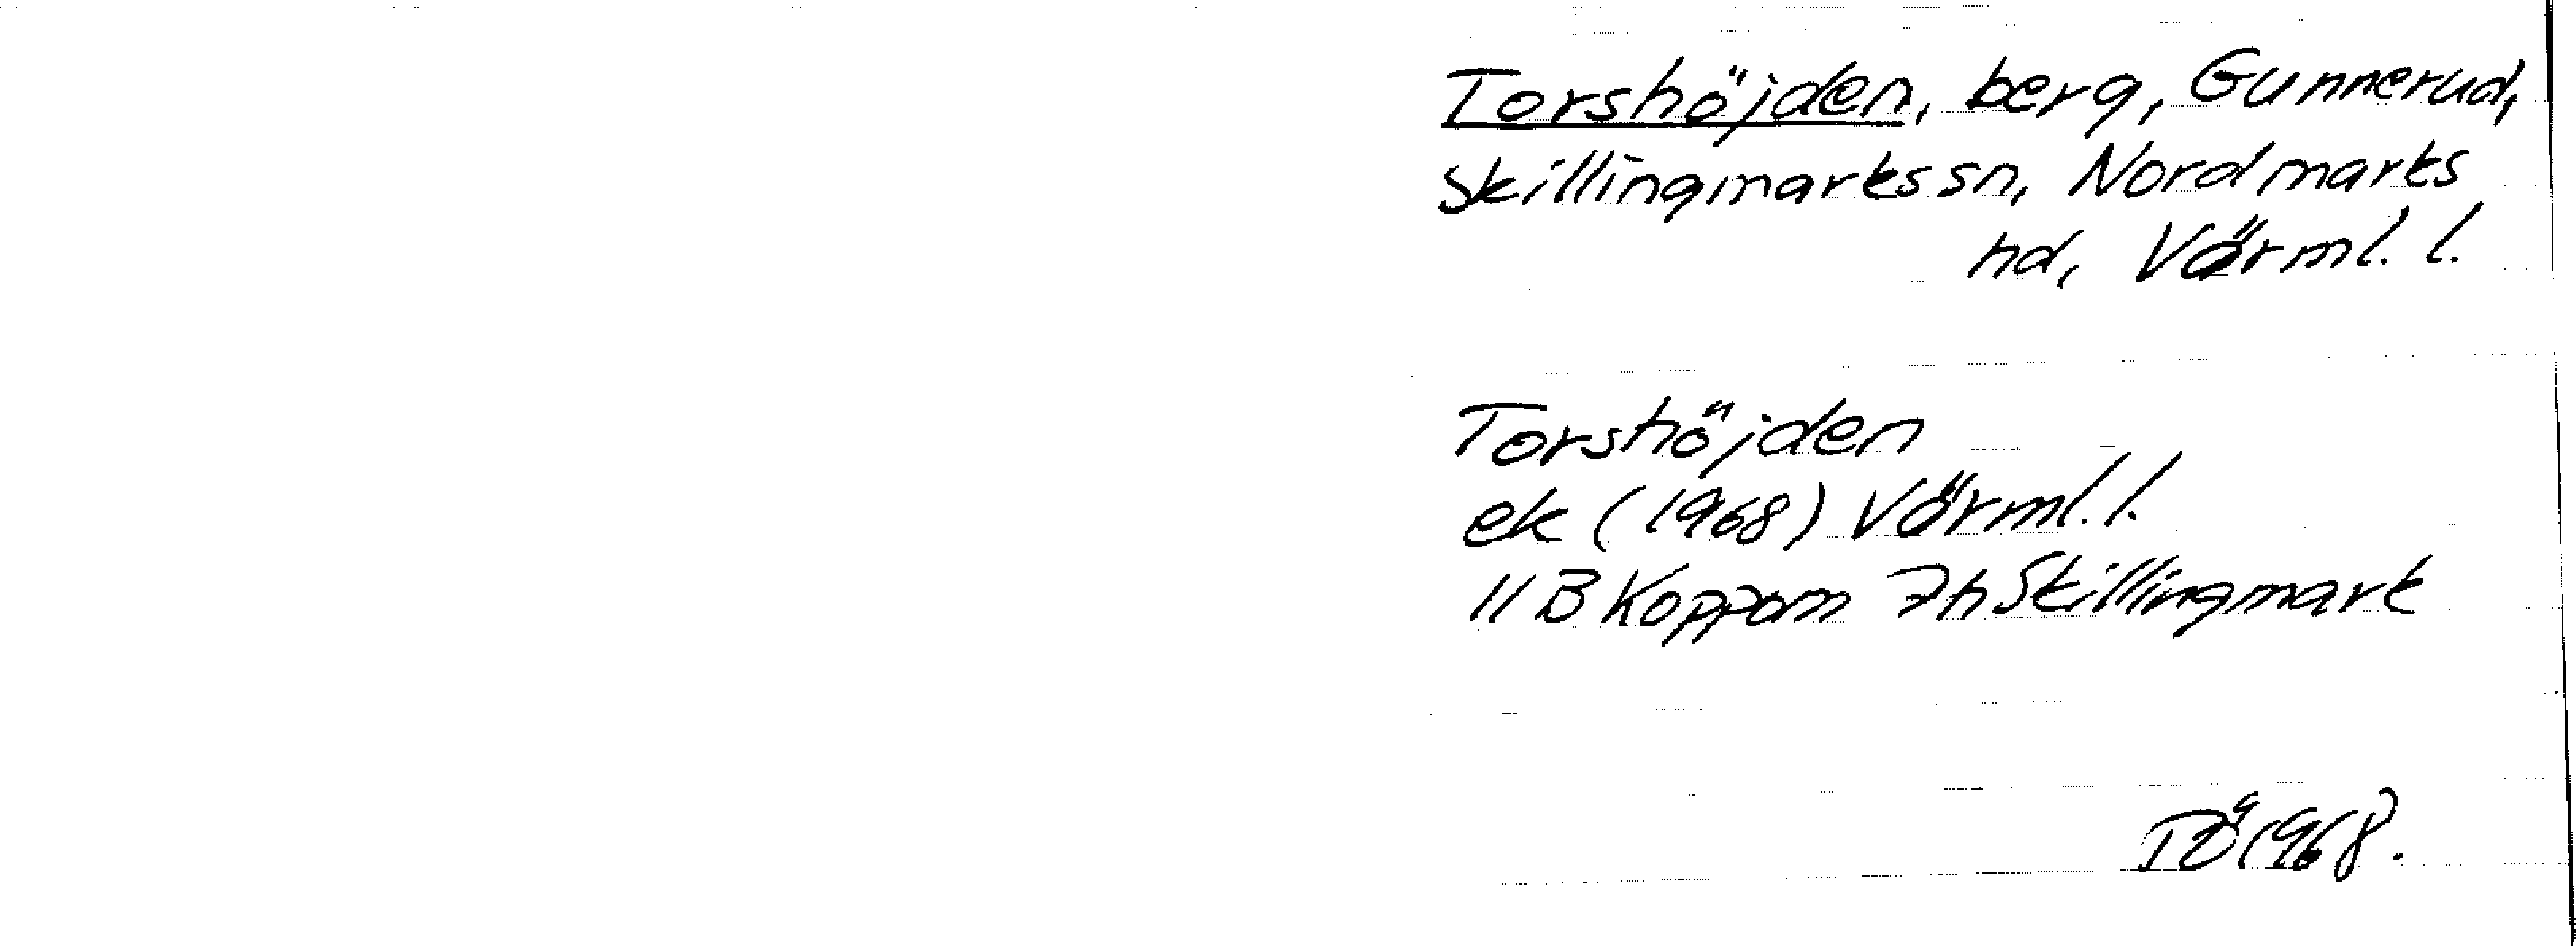 Torshöjden, berg, Gunnerud,
Skillingmarks sn, Nordmarks
hd, Värml. l.
Torshöjden
ek (1968) Värml. l.
11 B Koppom 7h Skillingmark
TÖ 1968.